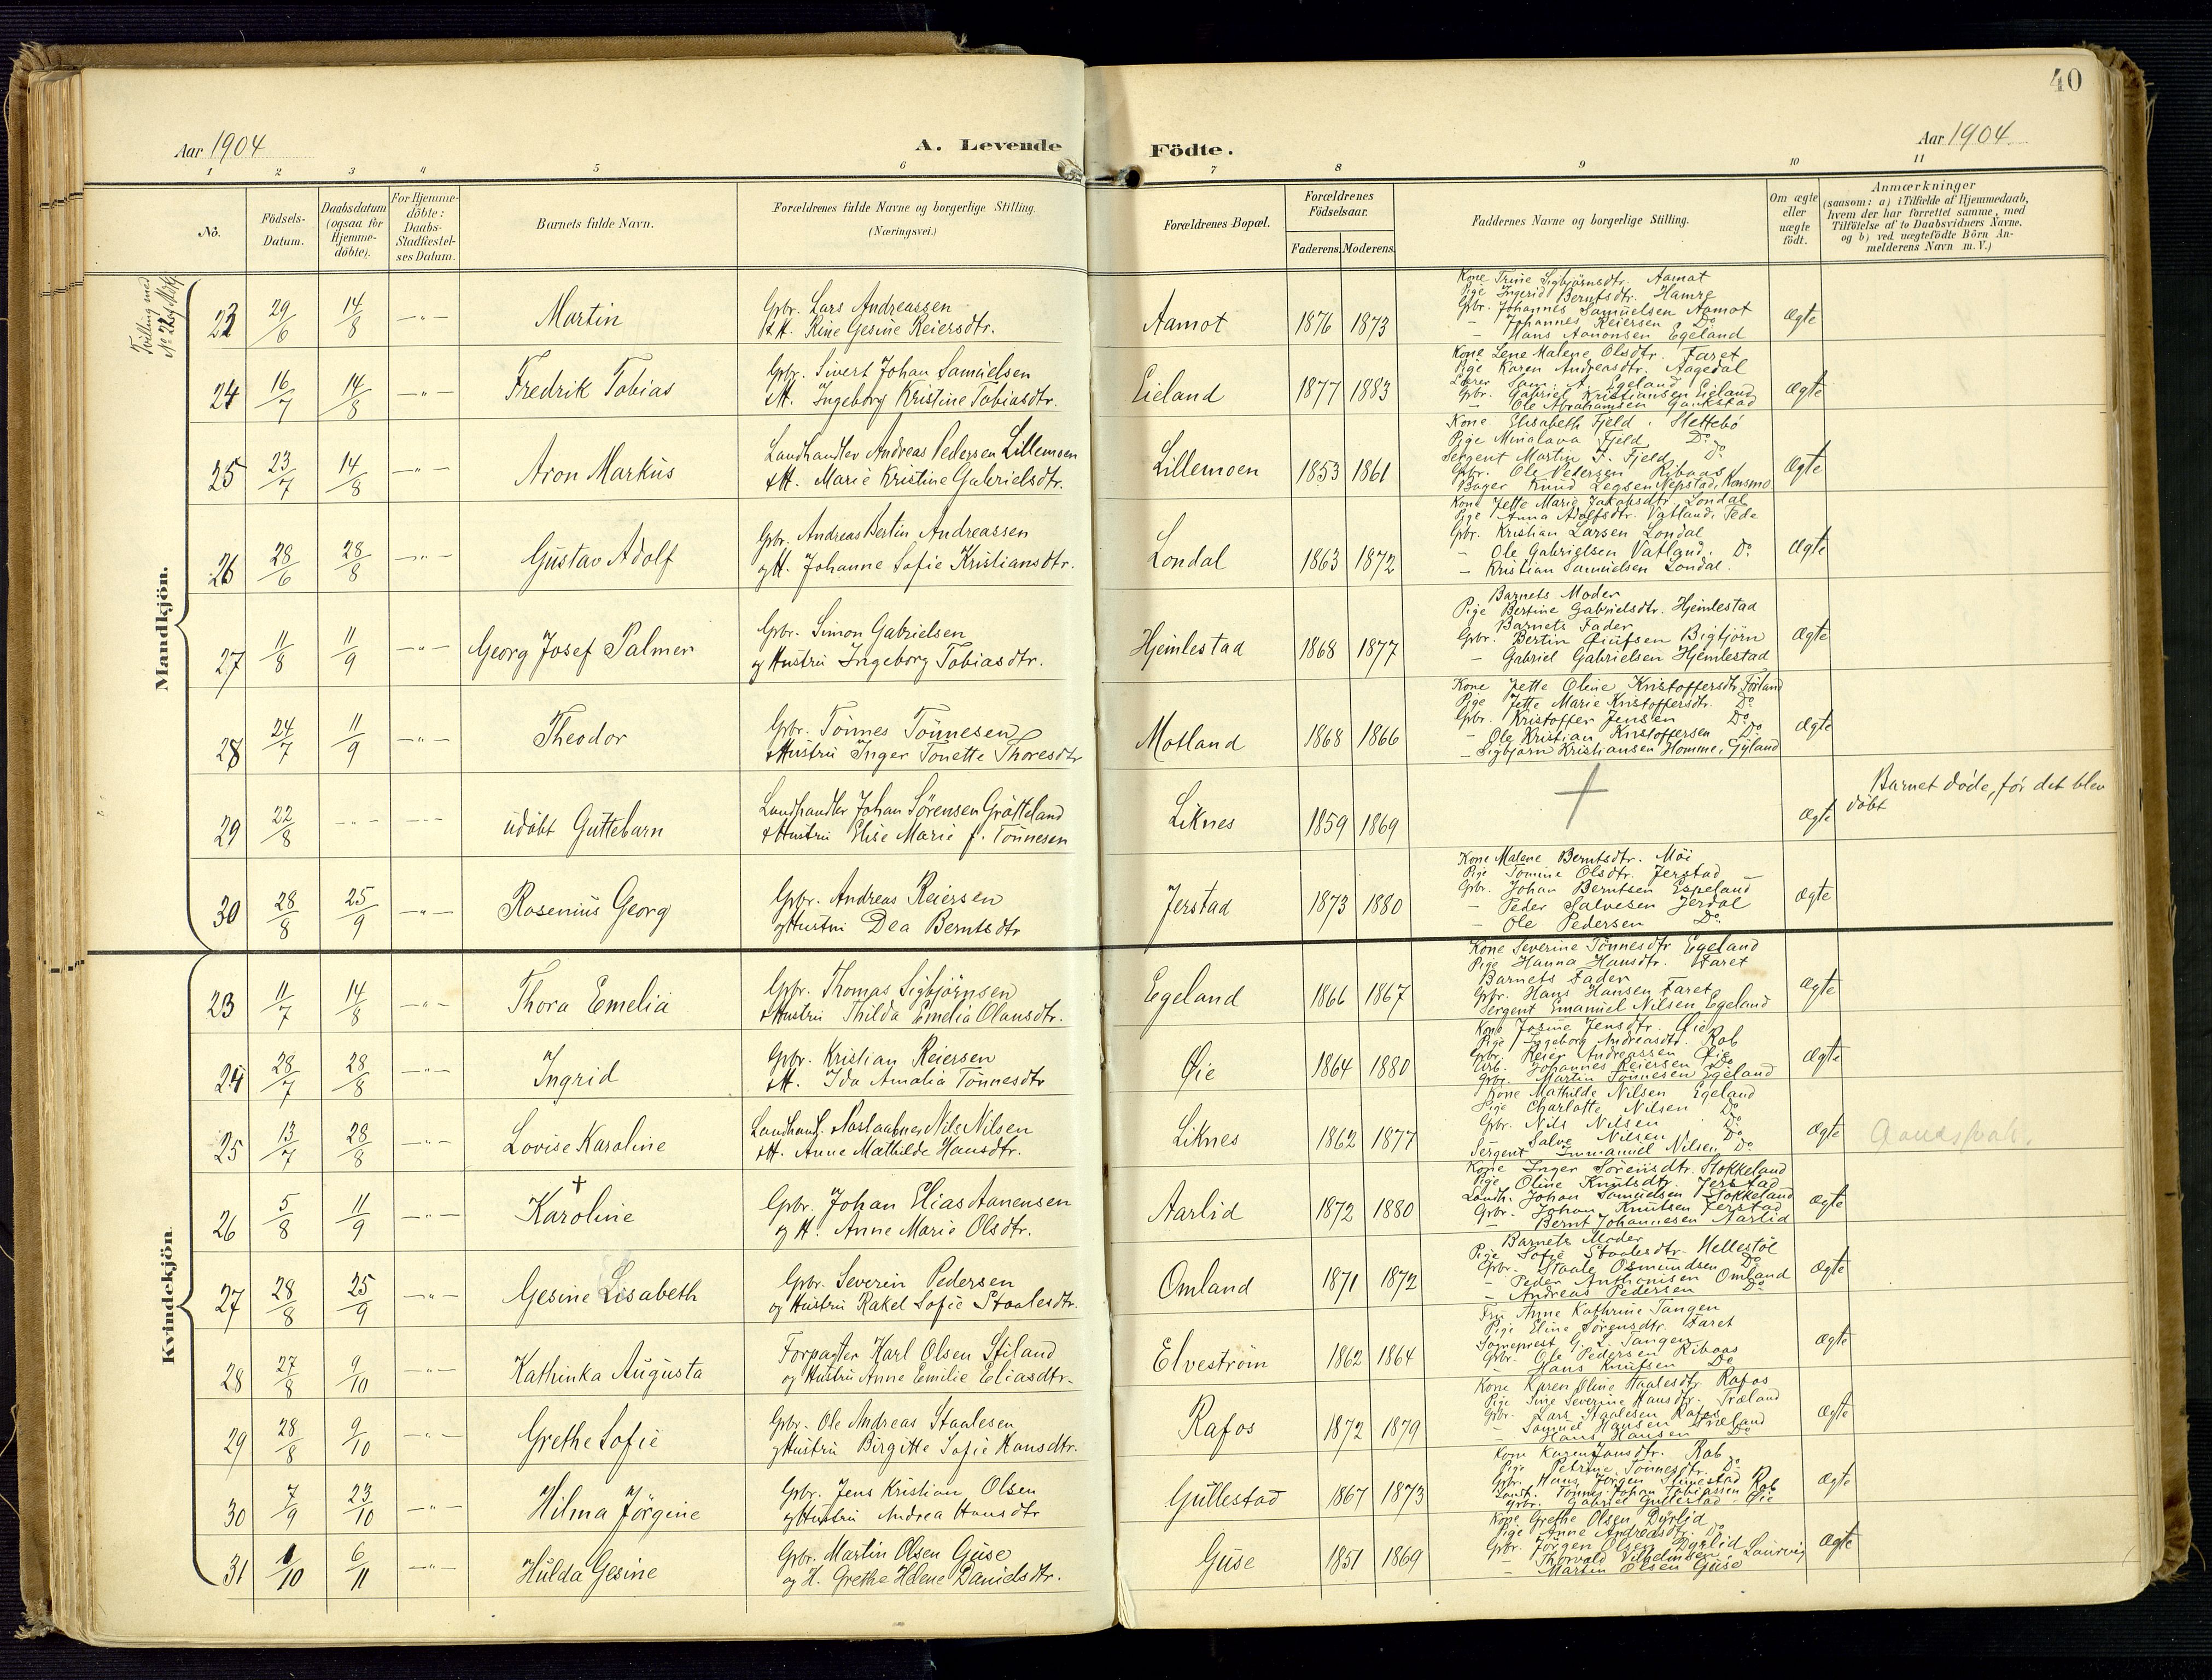 40
Aar 1904
A. Levende
Födte.
Aar 1904.
1 2 3 4 5 6 7 8 9 10 11
No.
Födsels-Datum.
Daabsdatum (ogsaa for Hjemme-döbte).
For Hjemme-döbte: Daabs-Stadfæstel-ses Datum.
Barnets fulde Navn.
Forældrenes fulde Navne og borgerlige Stilling.
(Næringsvei.)
Forældrenes Bopæl.
Forældrenes Födselsaar.
Faderens. Moderens.
Faddernes Navne og borgerlige Stilling.
Om ægte eller uægte födt.
Anmærkninger
(saasom: a) i Tilfælde af Hjemmedaab, hvem der har forrettet samme, med Tilföielse af to Daabsvidners Navne, og b) ved uægtefödte Börn An-melderens Navn m. V.)
Mandkjön.
Tvilling med No 22 af Mdkj.
23 29/6 14/8 —"— Martin
Gbr. Lars Andreassen
& H. Rine Gesine Reiersdtr.
Aamot 1876 1873
Kone Trine Sigbjörnsdtr. Aamot
Pige Ingerid Berntsdtr. Hamre
Gbr. Johannes Samuelsen Aamot
- Johannes Reiersen Do
- Hans Aanonsen Egeland
Ægte
24 16/7 14/8 —"— Fredrik Tobias
Gbr. Sivert Johan Samuelsen
& H. Ingeborg Kristine Tobiasdtr.
Eieland 1877 1883
Kone Lene Malene Olsdtr. Faret
Pige Karen Andreasdtr. Aagedal
Lærer Sam. A. Egeland
Gbr. Gabriel Kristiansen Eieland
- Ole Abrahamsen Gaukstad
Ægte
25 23/7 14/8 —"— Aron Markus
Landhandler Andreas Pedersen Lillemoen
& H. Marie Kristine Gabrielsdtr.
Lillemoen 1853 1861
Kone Elisabeth Fjeld, Hettebö
Pige Minalava Fjeld Do
Sergent Martin F. Fjeld Do
Gbr. Ole Pedersen Ribaas
Bager Knud Legsen Nepstad, Konsmo
Ægte
26 28/6 28/8 —"— Gustav Adolf
Gbr. Andreas Bertin Andreassen
og H. Johanne Sofie Kristiansdtr.
Londal 1863 1872
Kone Jette Marie Jakobsdtr. Londal
Pige Anna Adolfsdtr. Vatland, Fede
Gbr. Kristian Larsen Londal
- Ole Gabrielsen Vatland. Do
- Kristian Samuelsen Londal.
Ægte
27 11/8 11/9 —"— Georg Josef Palmer
Gbr. Simon Gabrielsen
og Hustru Ingeborg Tobiasdtr.
Hjemlestad 1868 1877
Barnets Moder
Pige Bertine Gabrielsdtr. Hjemlestad
Barnets Fader
Gbr. Bertin Eliufsen Bigtjörn
- Gabriel Gabrielsen Hjemlestad
Ægte
28 24/7 11/9 —"— Theodor
Gbr. Tönnes Tönnesen
& Hustru Inger Tonette Thoresdtr
Motland 1868 1866
Kone Jette Oline Kristoffersdtr Förland
Pige Jette Marie Kristoffersdtr. Do
Gbr. Kristoffer Jensen Do
- Ole Kristian Kristoffersen Do
- Sigbjörn Kristiansen Homme, Gyland
Ægte
29 22/8 —"— —"— udöbt Guttebarn
Landhandler Johan Sörensen Grötteland
& Hustru Elise Marie f. Tönnesen
Liknes 1859 1869
+
Ægte
Barnet döde, för det blev döbt
30 28/8 25/9 —"— Rosenius Georg
Gbr. Andreas Reiersen
og Hustru Dea Berntsdtr
Jerstad 1873 1880
Kone Malene Berntsdtr. Möi
Pige Tomine Olsdtr. Jerstad
Gbr. Johan Berntsen Espeland
- Peder Salvesen Jerdal
- Ole Pedersen Do
Ægte
Kvindekjön
23 11/7 14/8 —"— Thora Emelia
Gbr. Thomas Sigbjörnsen
& Hustru Thilda Emelia Olausdtr.
Egeland 1866 1867
Kone Severine Tönnesdtr Egeland
Pige Hanna Hansdtr. Faret
Barnets Fader
Gbr. Hans Hansen Faret
Sergent Emanuel Nilsen Egeland
Ægte
24 28/7 28/8 —"— Ingrid
Gbr. Kristian Reiersen
& H. Ida Amalia Tönnesdtr
Öie 1864 1880
Kone Josine Jensdtr. Öie
Pige Ingeborg Andreasdtr. Rob
Gbr. Reier Andreassen Öie
Arb. Johannes Reiersen Do
Gbr. Martin Tönnesen Egeland
Ægte
25 13/7 28/8 —"— Lovise Karoline
Landhand. Postaabner Nils Nilsen
& H. Anne Mathilde Hansdtr.
Liknes 1862 1877
Kone Mathilde Nilsen Egeland
Pige Charlotte Nilsen Do
Gbr. Nils Nilsen Do
Salve Nilsen Do
Sergent Immanuel Nilsen Do
Ægte
26 5/8 11/9 —"— Karoline +
Gbr. Johan Elias Aanensen
og H. Anne Marie Olsdtr.
Aarlid 1872 1880
Kone Inger Sörensdtr. Stokkeland
Pige Oline Knutsdtr. Jerstad
Landh. Johan Samuelsen Stokkeland
Gbr. Johan Knutsen Jerstad
- Bernt Johannesen Aarlid
Ægte
27 28/8 25/9 —"— Gesine Lisabeth
Gbr. Severin Pedersen
og Hustru Rakel Sofie Staalesdtr.
Omland 1871 1872
Barnets Moder
Pige Sofie Staalesdtr. Hellestöl
Gbr. Staale Osmundsen Do
- Peder Anthonisen Omland
- Andreas Pedersen Do
Ægte
28 27/8 9/10 —"— Kathinka Augusta
Forpagter Karl Olsen Stiland
og Hustru Anne Emilie Eliasdtr.
Elveström 1862 1864
Fru Anne Kathrine Tangen
Pige Eline Sörensdtr. Faret
Sogneprest G. L. Tangen
Gbr. Ole Pedersen Ribaas
- Hans Knutsen Do
Ægte
29 28/8 9/10 —"— Grethe Sofie
Gbr. Ole Andreas Staalesen
og Hustru Birgitte Sofie Hansdtr.
Rafos 1872 1879
Kone Karen Oline Staalesdtr. Rafos
Pige Sine Severine Hansdtr. Træland
Gbr. Lars Staalesen Rafos
- Samuel Hansen Træland
- Hans Hansen Do
Ægte
30 7/9 23/10 —"— Hilma Jörgine
Gbr. Jens Kristian Olsen
og Hustru Andrea Hansdtr
Gullestad 1867 1873
Kone Karen Jansdtr. Rob
Pige Petrine Tönnesdtr. Do
Gbr. Hans Jörgen Slimestad
Landh. Tönnes Johan Tobiassen Rob
Gbr. Gabriel Gullestad Öie
Ægte
31 1/10 6/11 —"— Hulda Gesine
Gbr. Martin Olsen Guse
og H. Grethe Helene Danielsdtr.
Guse 1851 1869
Kone Grethe Olsen Dyrlid
Pige Anne Andreasdtr. Do
Gbr. Jörgen Olsen Dyrlid
- Thorvald Vilhelmsen Laurvig
- Martin Olsen Guse
Ægte